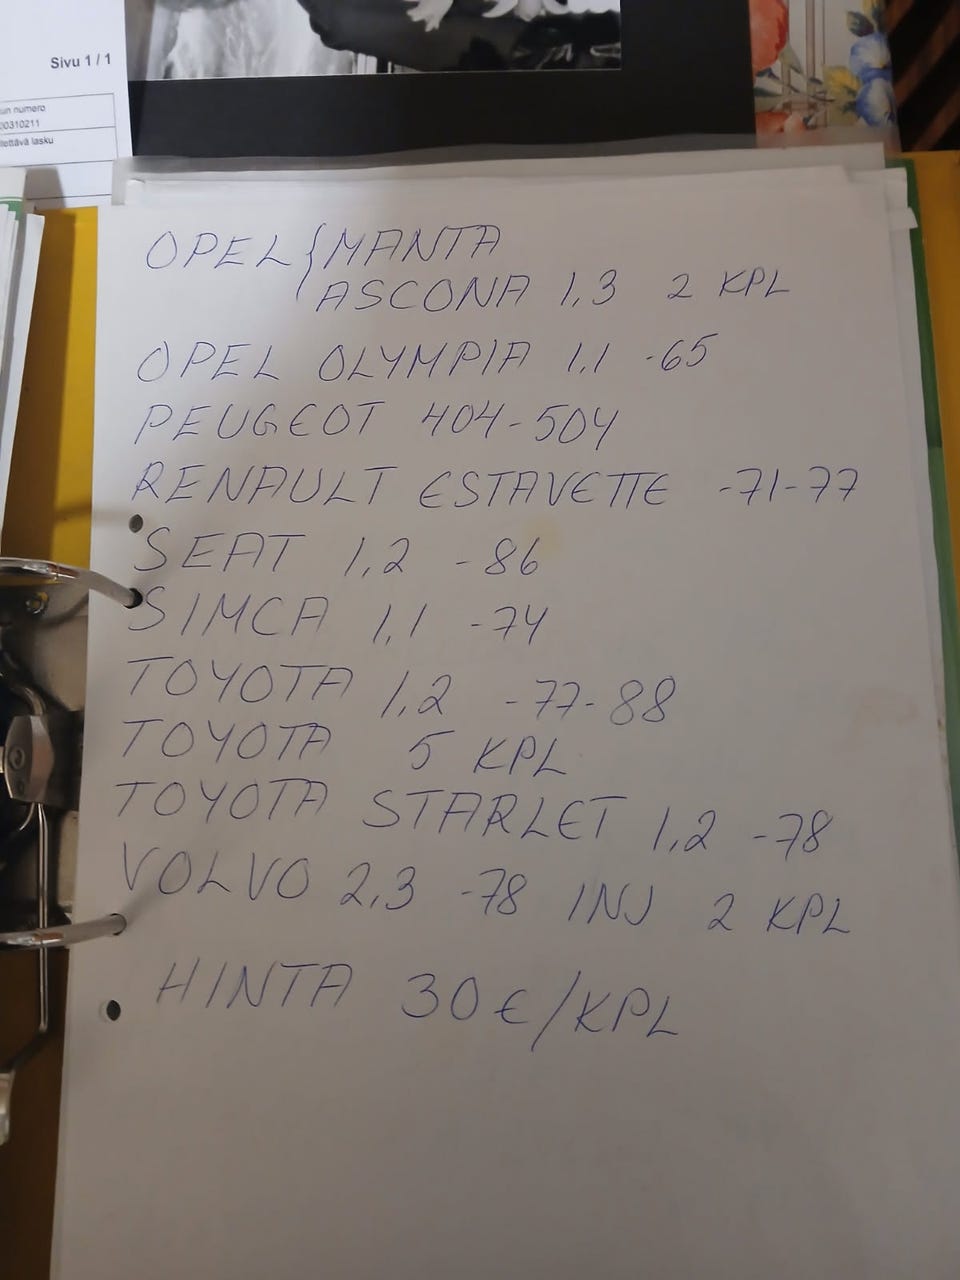 Sivu 1 / 1
un numero
0310211
lettävä lasku
OPEL { MANTA
ASCONA 1,3 2 KPL
OPEL OLYMPIA 1,1 -65
PEUGEOT 404-504
RENAULT ESTAVETTE -71-77
SEAT 1,2 -86
SIMCA 1,1 -74
TOYOTA 1,2 -77-88
TOYOTA 5 KPL
TOYOTA STARLET 1,2 -78
VOLVO 2,3 -78 INJ 2 KPL
HINTA 30€/KPL